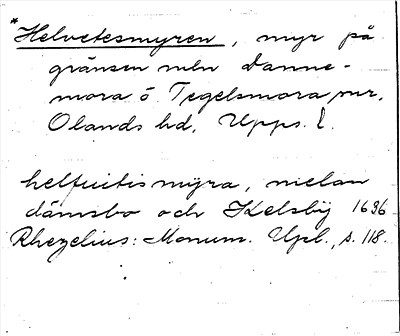 *Helvetesmyren, myr på
gränsen mln Danne-
mora o. Tegelsmora snr,
Olands hd, Upps. l.
helfuitis myra, melan
dämsbo och Kelsbÿ 1636
Rhezelius: Monum. Upl., s. 118.